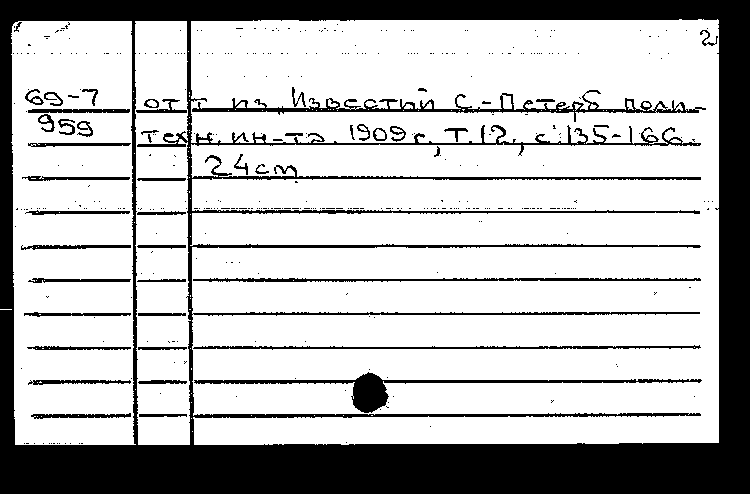 2
69-7 отт из „Известий С.-Петерб поли-
959 техн. ин-та. 1909 г., Т.12., с.135-166.
24 см